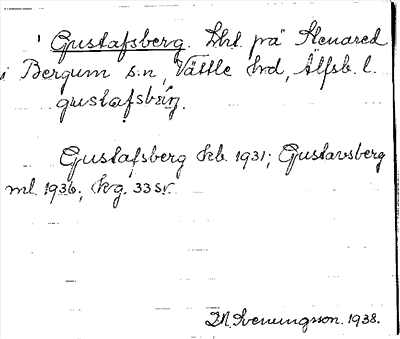 Gustafsberg. Lht. på Stenared
i Bergum s:n, Vättle hrd, Älfsb. l.
gustafsbærj.
Gustafsberg kb. 1931; Gustavsberg
ml. 1936; kg. 33 sv.
Svenungsson. 1938.